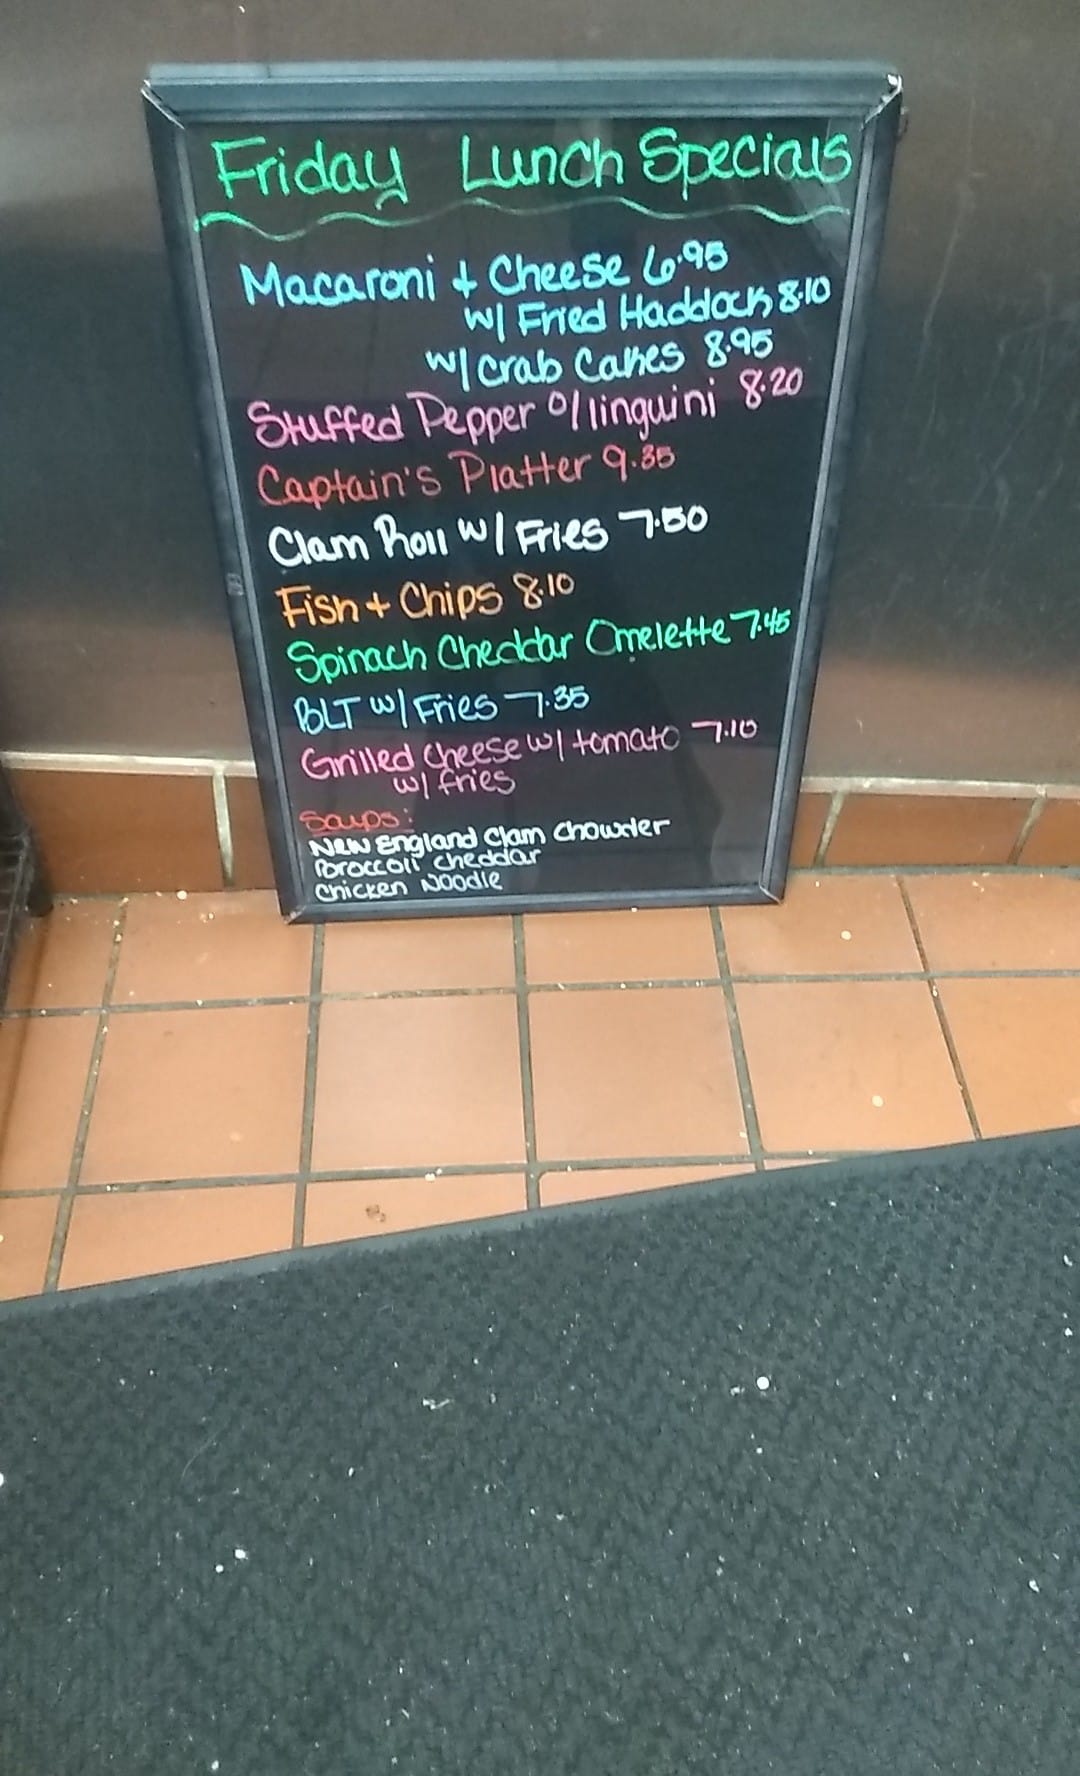 Friday Lunch Specials
Macaroni + Cheese 6.95
w/ Fried Haddock 8.10
w/ Crab Cakes 8.95
Stuffed Pepper o/ linguini 8.20
Captain's Platter 9.35
Clam Roll w/ Fries 7.50
Fish + Chips 8.10
Spinach Cheddar Omelette 7.45
BLT w/ Fries 7.35
Grilled Cheese w/ tomato 7.10
w/ fries
Soups:
New England Clam Chowder
Broccoli Cheddar
Chicken Noodle